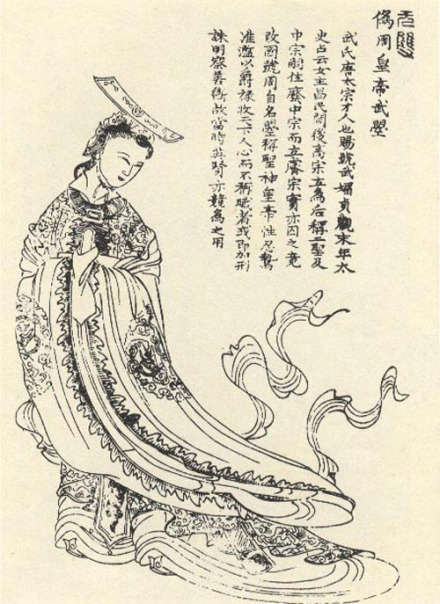 无雙
僞周皇帝武曌
武氏唐太宗才人也賜號武媚貞觀末年太
史占云女主昌民間後高宗立為后稱二聖及
中宗嗣位廢中宗而立睿宗實亦囚之竟
改國號周自名曌稱聖神皇帝性忍鷙
准濫以爵祿收天下人心而不稱職者或即加刑
誅明察善斷故當時英賢亦競為之用